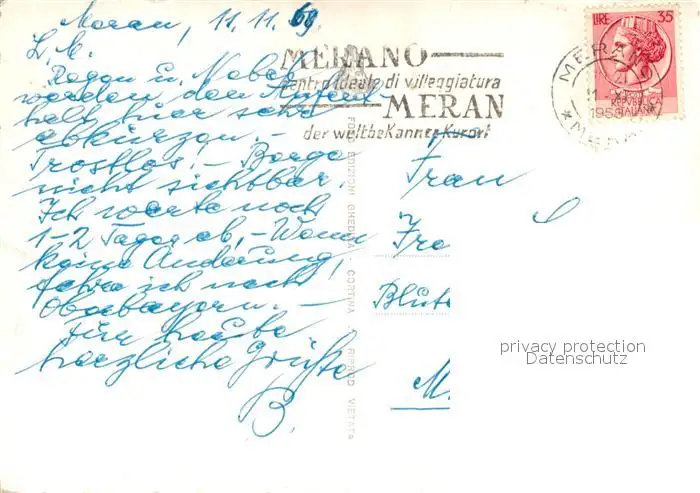 Meran, 11.11.
L. M.
Regen u. Nebel
werden den Aufent
halt hier sehr
abkürzen. –
Trostlos! – Berge
nicht sichtbar.
Ich warte noch
1–2 Tage ab, – Wenn
keine Änderung,
fahre ich nach
Oberbayern. –
Für heute
herzliche Grüße
B.
MERANO
centro ideale di villeggiatura
MERAN
der weltbekannte Kurort
LIRE 35
REPVBBLICA
ITALIANA
MERANO
MERAN
FOTO EDIZIONI GHEDINA - CORTINA - RIPROD. VIETATA
Frau
Fra
Blut
M.
privacy protection
Datenschutz